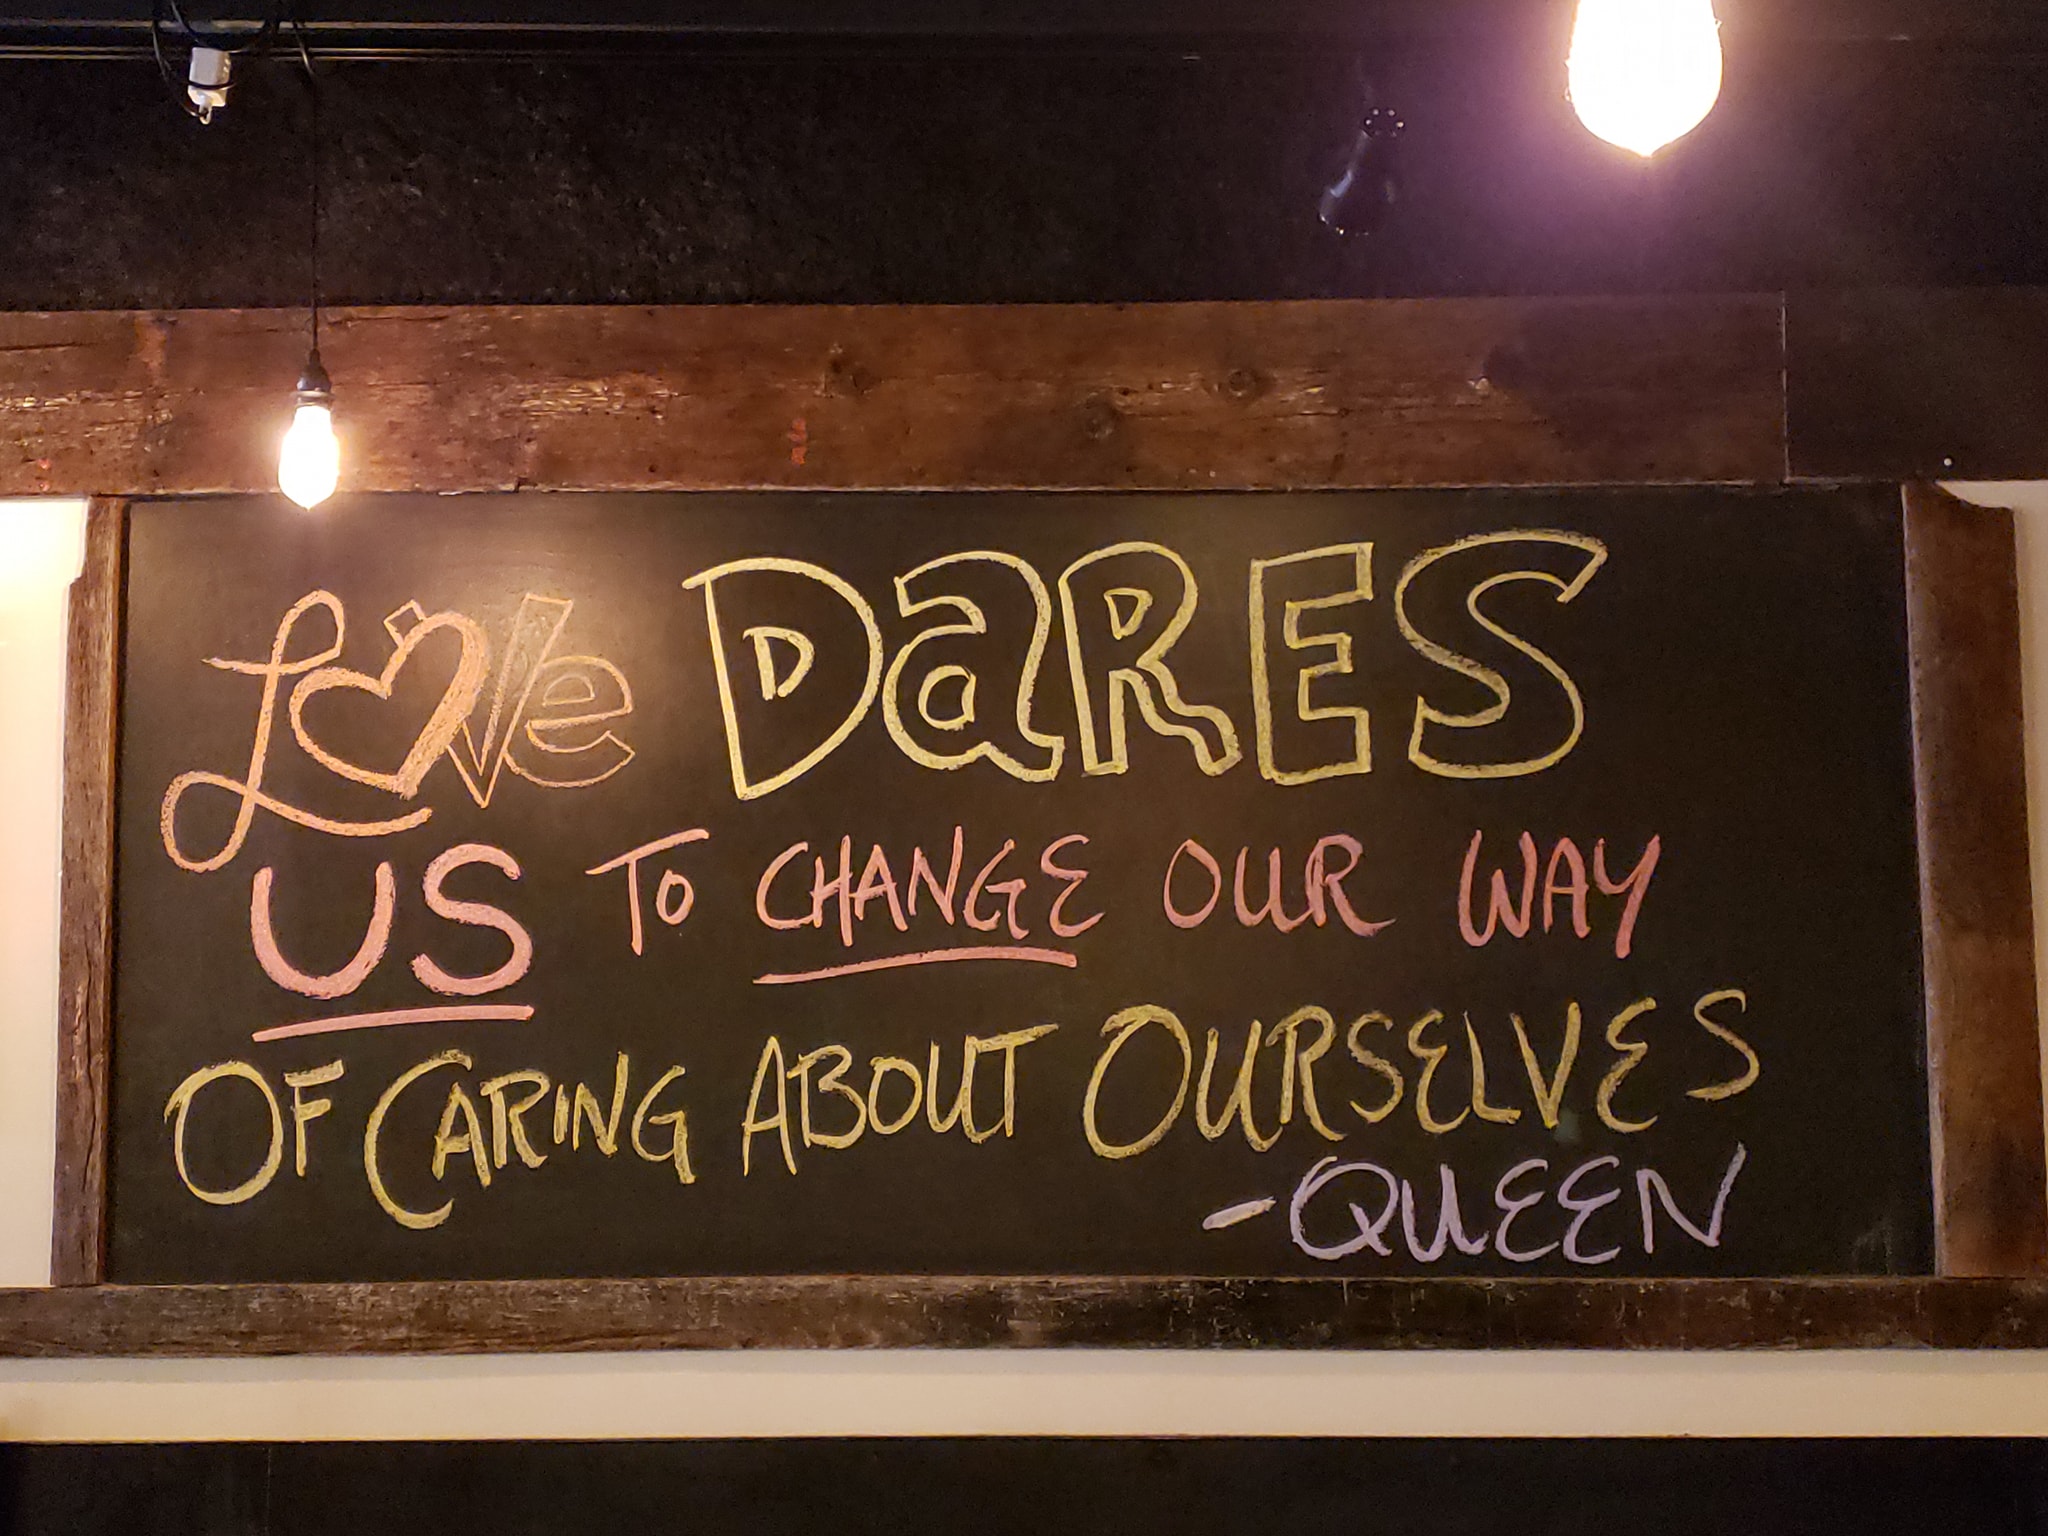 Love DaRES
US TO CHANGE OUR WAY
OF CARING ABOUT OURSELVES
-QUEEN